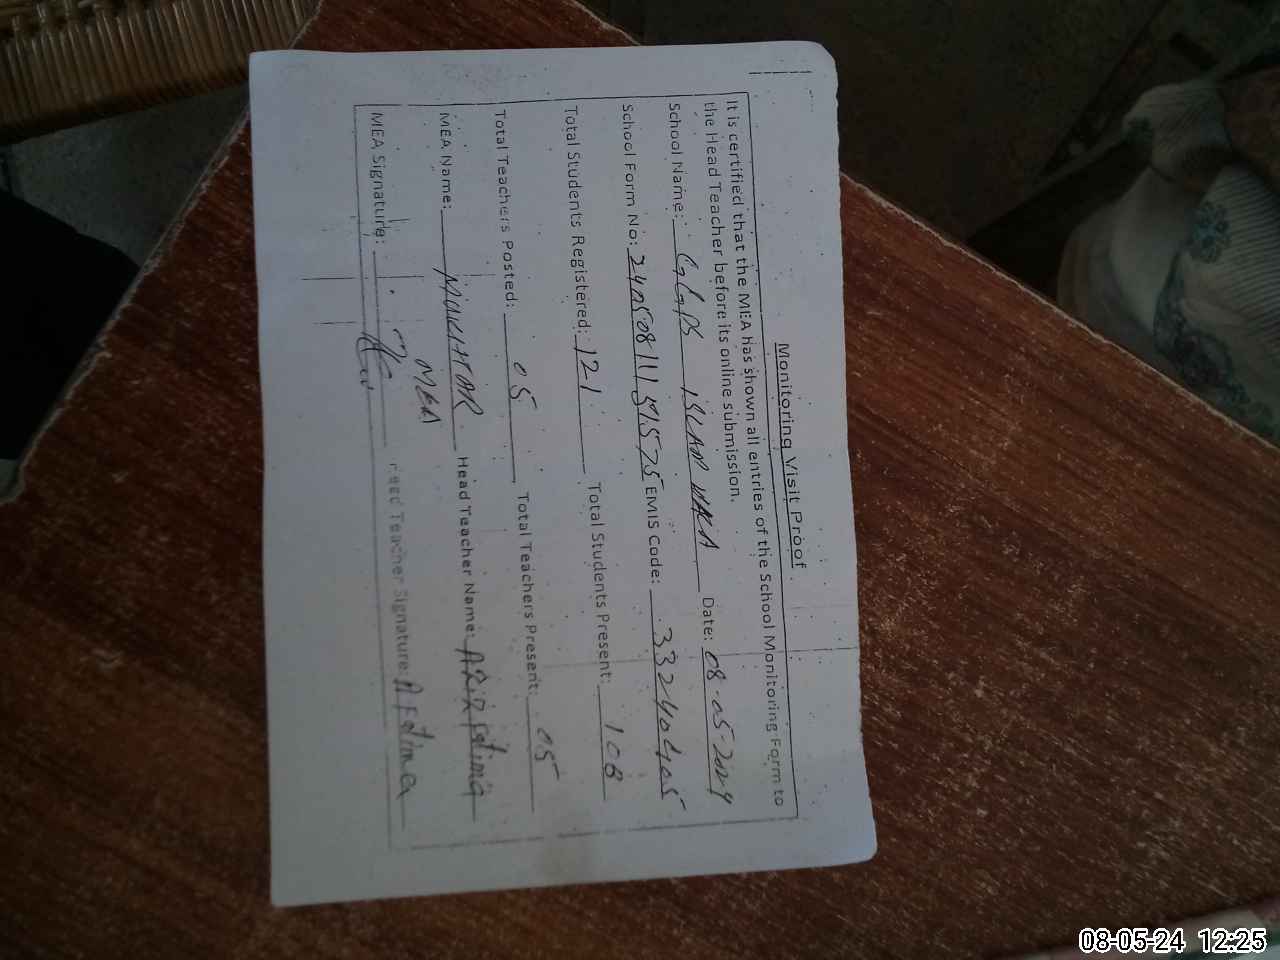 Monitoring Visit Proof
It is certified that the MEA has shown all entries of the School Monitoring Form to
the Head Teacher before its online submission.
School Name: GGPS ISLAM WALA Date: 08-05-2024
School Form No: 24050811151575 EMIS Code: 33240405
Total Students Registered: 121 Total Students Present: 108
Total Teachers Posted: 05 Total Teachers Present: 05
MEA Name: MUKHTAR Head Teacher Name: Fatima
MEA
MEA Signature: Head Teacher Signature: A Fatima
08-05-24 12:25